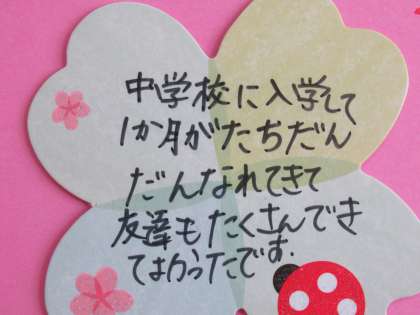 中学校に入学して
1か月がたちだん
だんなれてきて
友達もたくさんでき
てよかったです.